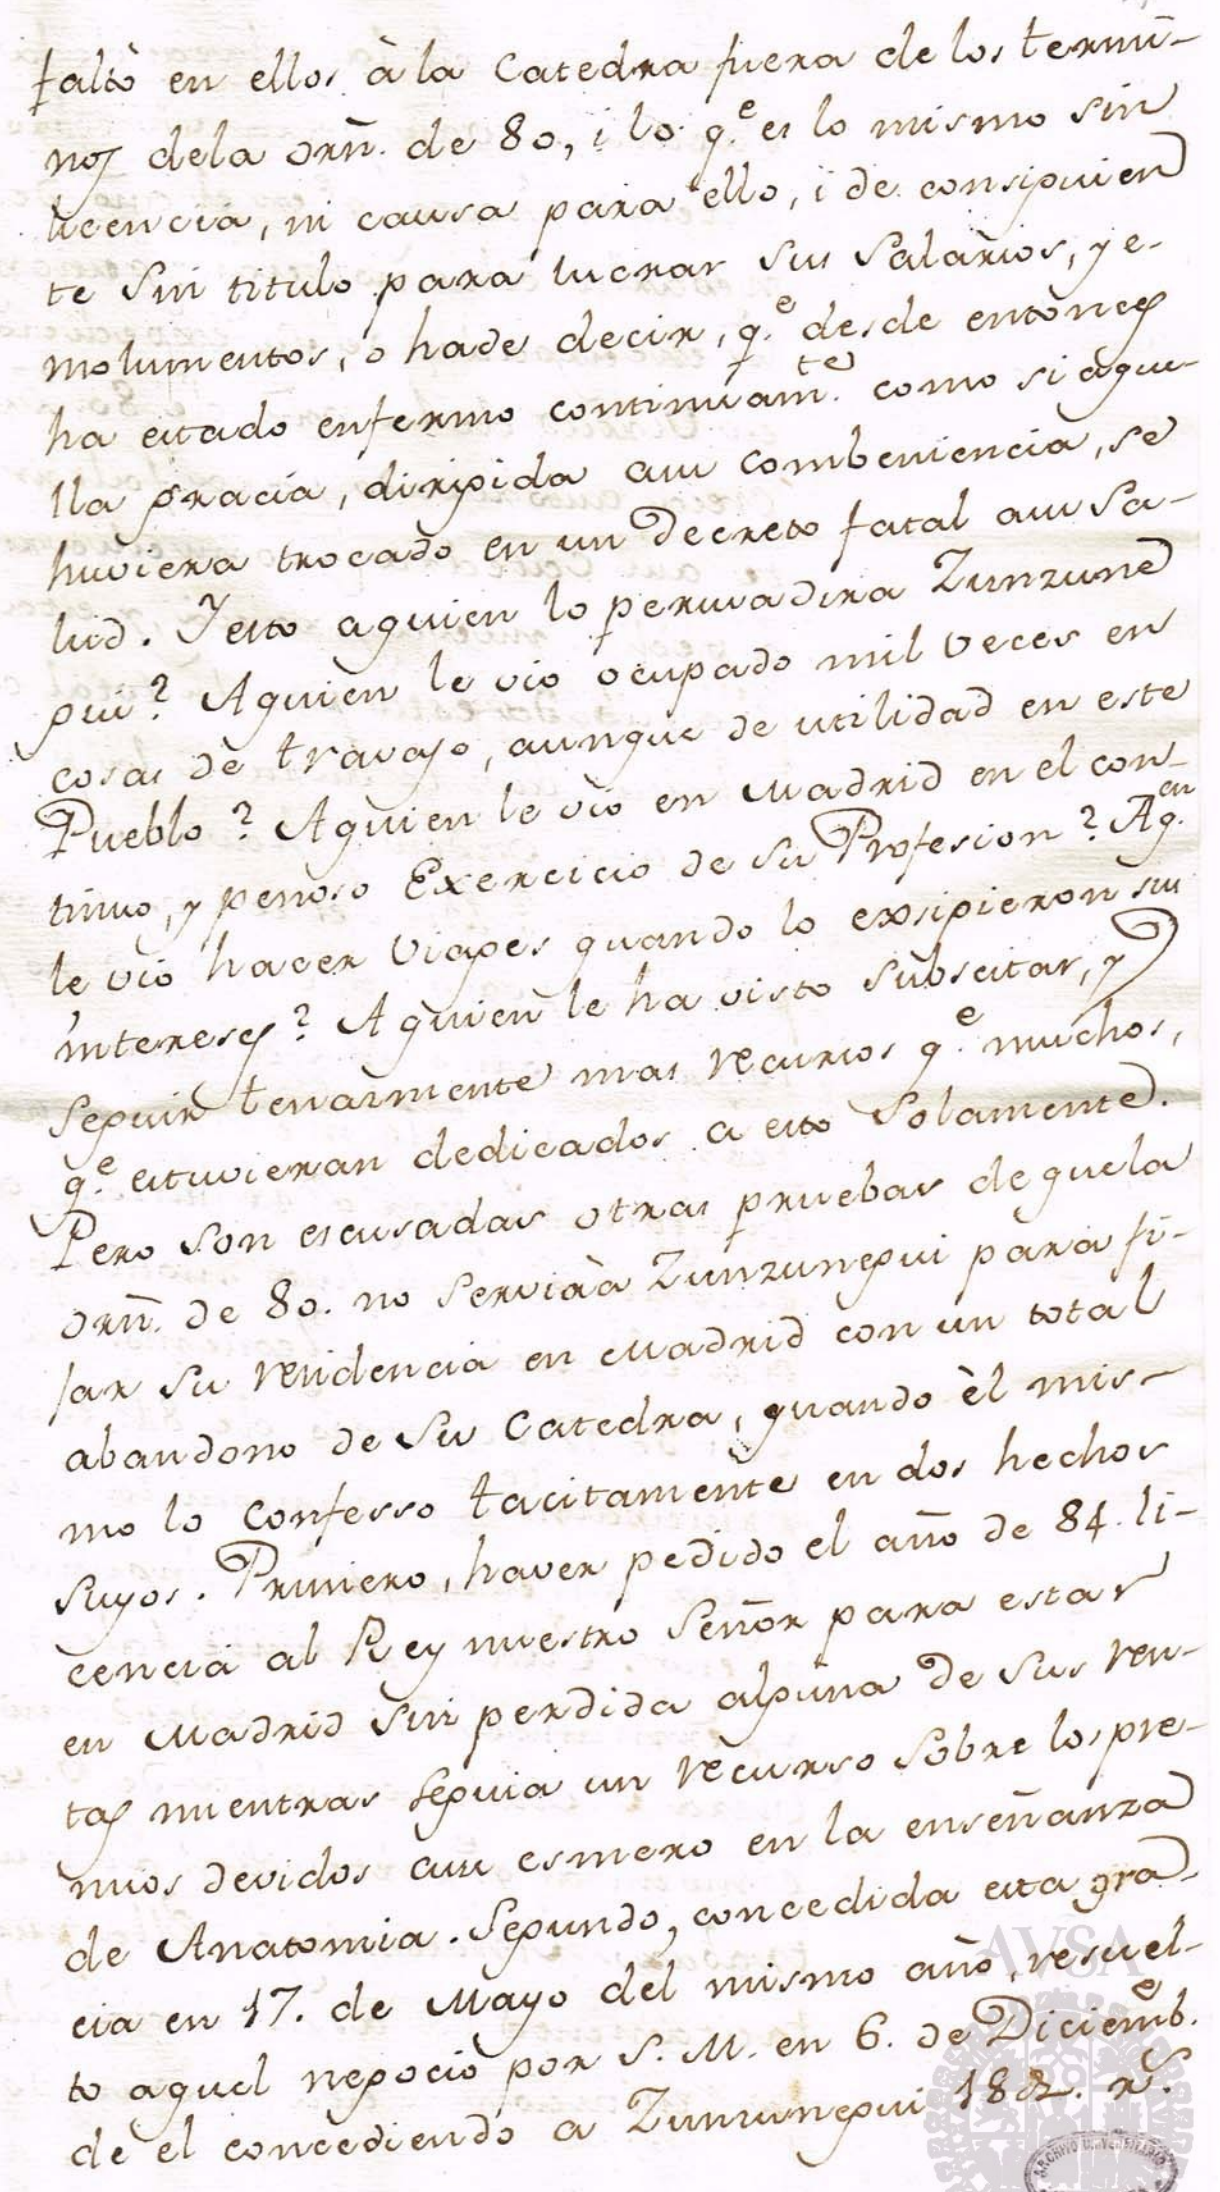 faltò en ellos à la Catedra fuera de los termi-
nos dela orñ. de 80, i lo q.e es lo mismo sin
licencia, ni causa para ello, i de consiguien
te sin titulo para lucrar sus Salarios, y e-
molumentos, o hade decir, q.e desde entonces
ha estado enfermo continuam.te como si aque-
lla gracia, dirigida asu combeniencia, se
huviera trocado en un Decreto fatal asu sa-
lud. Y esto aquien lo persuadira Zunzune
gui? Aquien le vio ocupado mil veces en
cosas de travajo, aunque de utilidad en este
Pueblo? Aquien le vio en Madrid en el con-
tinuo, y penoso Exercicio de su Profesion? Aq.en
le vio hacer Viages quando lo exsigieron sus
intereses? Aquien le ha visto subscitar, y
seguir tenazmente mas recursos q.e muchos,
q.e estuvieran dedicados a esto Solamente.
Pero son escusadas otras pruebas de quela
orñ. de 80. no servia à Zunzunegui para fi-
jar su residencia en Madrid con un total
abandono de su Catedra, quando èl mis-
mo lo confesso tacitamente en dos hechos
suyos. Primero, haver pedido el año de 84. li-
cencia al Rey nuestro Señor para estar
en Madrid sin perdida alguna de sus ren-
tas mientras seguia un recurso sobre los pre-
mios devidos asu esmero en la enseñanza
de Anatomia. Segundo, concedida esta gra-
cia en 17. de Mayo del mismo año, resuel-
to aquel negocio por S. M. en 6. de Diciemb.e
de el concediendo a Zunzunegui 182. r.s
AVSA
ARCHIVO UNIVERSITARIO